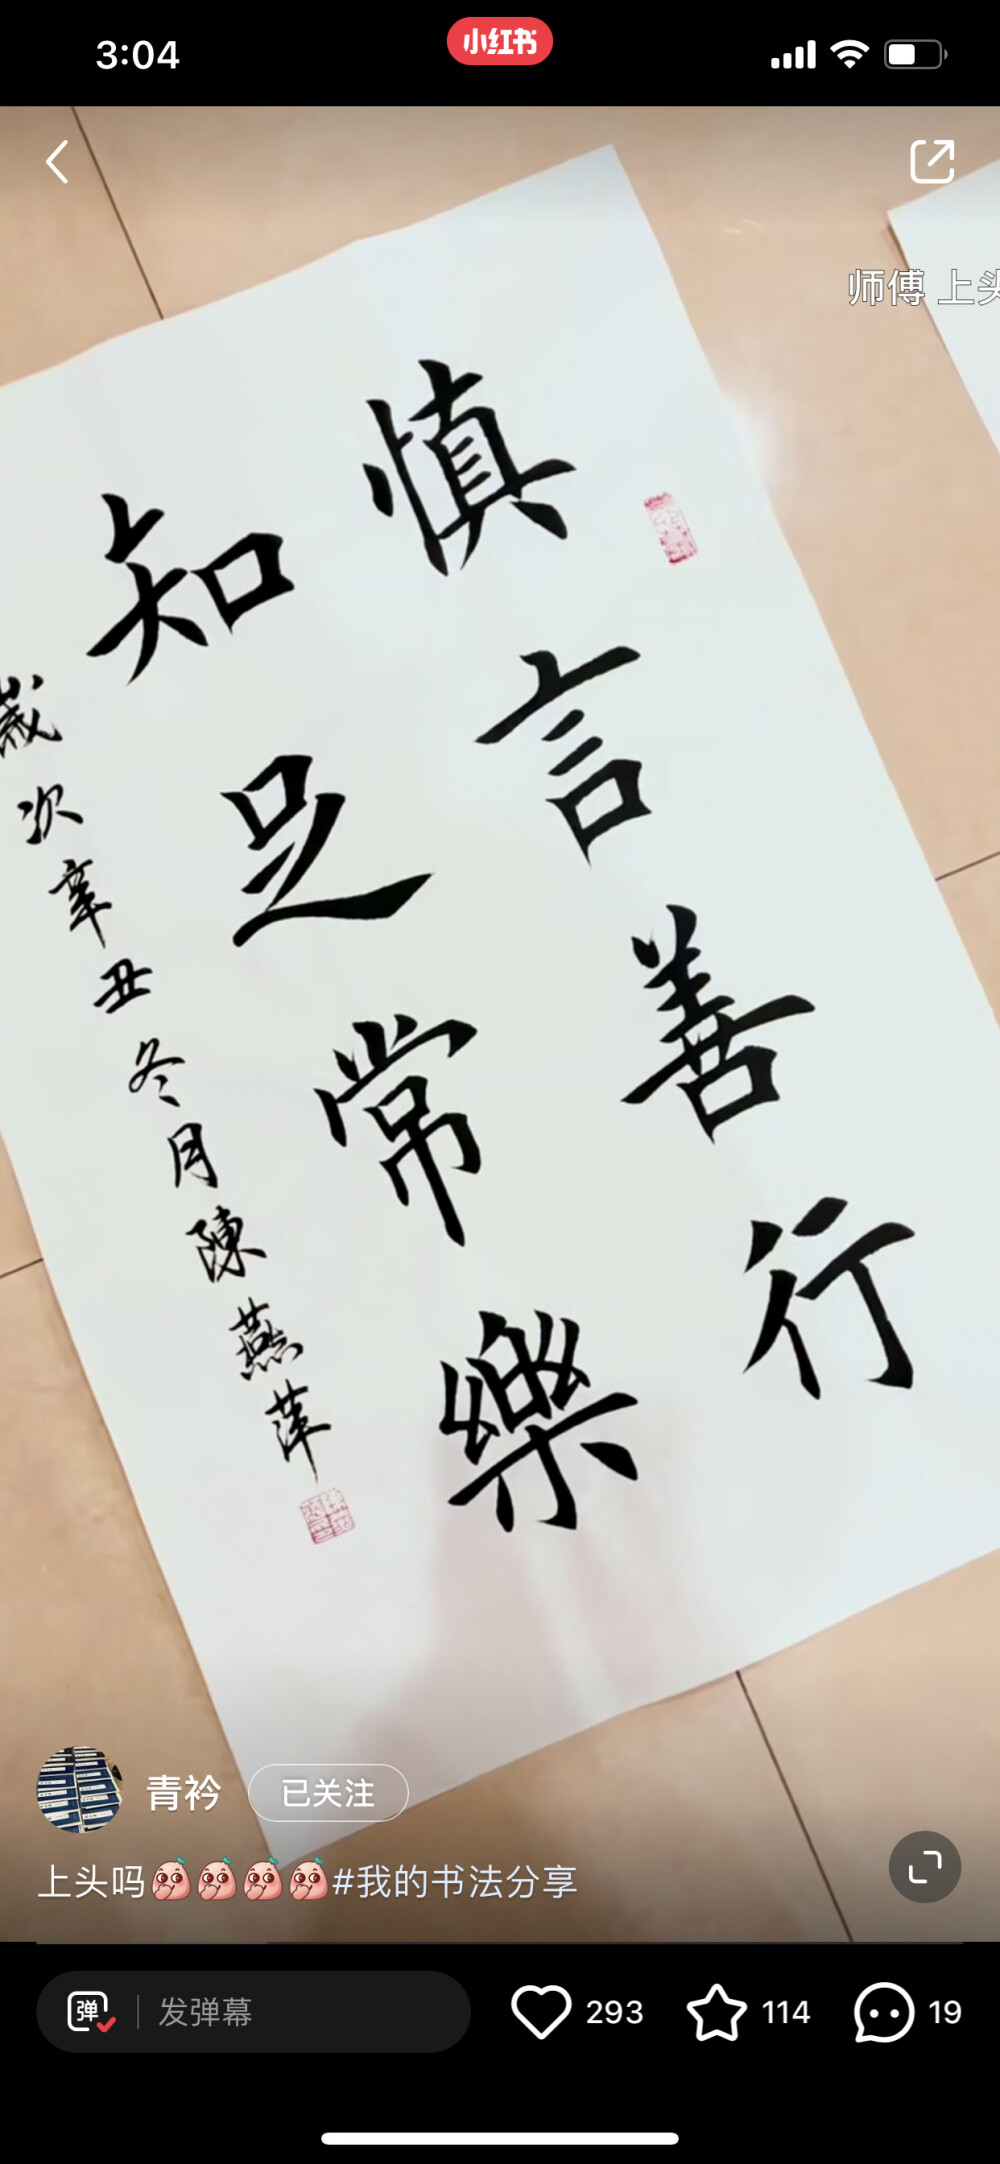 3:04
小红书
师傅 上头
慎言善行
知足常樂
歲次辛丑冬月陳燕萍
青衿
已关注
上头吗#我的书法分享
弹
发弹幕
293
114
19